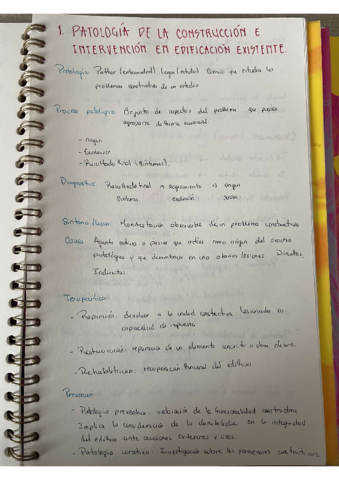 1. PATOLOGÍA DE LA CONSTRUCCIÓN E
INTERVENCIÓN EN EDIFICACIÓN EXISTENTE
Patología: Pathos (enfermedad) Logos (estudio) Ciencia que estudia los
problemas constructivos de un edificio
Proceso patológico: Conjunto de aspectos del problema que pueden
agruparse de forma secuencial
- Origen
- Evolución
- Resultado final (Síntomas)
Diagnóstico: Resultado final → seguimiento → origen
Síntoma evolución
Síntoma/Lesión: Manifestación observable de un problema constructivo
Causa: Agente activo o pasivo que actúa como origen del proceso
patológico y que desemboca en una o varias lesiones. Directas,
Indirectas
Terapéutica:
- Reparación: devolver a la unidad constructiva lesionada su
capacidad de respuesta
- Restauración: reparación de un elemento concreto u obra
- Rehabilitación: recuperación funcional del edificio
Prevenir
- Patología preventiva: valoración de la funcionalidad constructiva
Implica la consideración de la durabilidad en la integridad
del edificio ante acciones exteriores y usos
- Patología curativa: Investigación sobre los fenómenos constructivos